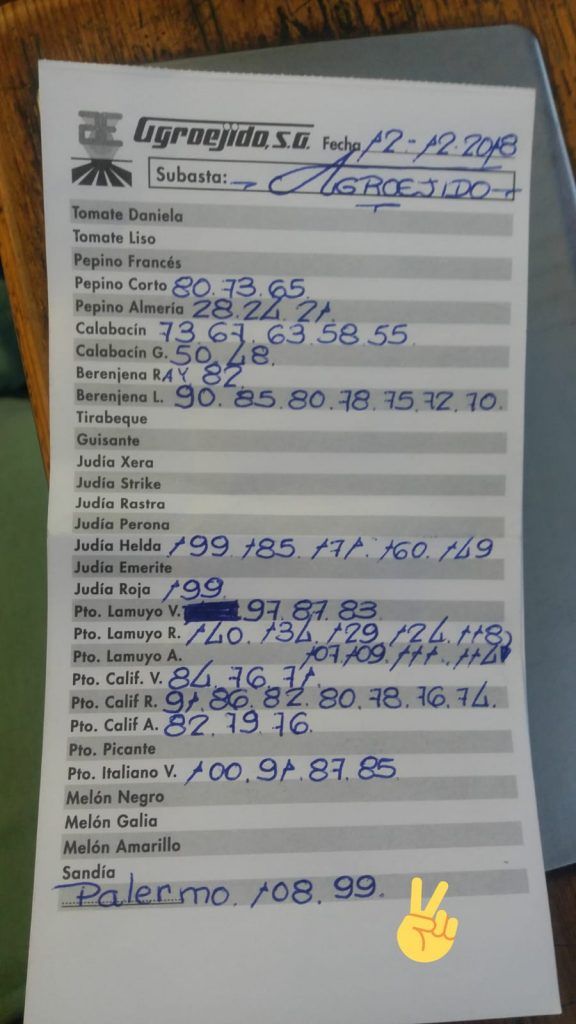 Agroejido, S.A. Fecha 12-12-2018
Subasta: AGROEJIDO
Tomate Daniela
Tomate Liso
Pepino Francés
Pepino Corto 80.73.65.
Pepino Almería 28.24.21.
Calabacín 73.67.63.58.55.
Calabacín G. 50.48.
Berenjena RAY 82
Berenjena L. 90.85.80.78.75.72.70.
Tirabeque
Guisante
Judía Xera
Judía Strike
Judía Rastra
Judía Perona
Judía Helda 199.185.171.160.149
Judía Emerite
Judía Roja 199.
Pto. Lamuyo V. 97.87.83
Pto. Lamuyo R. 140.134.129.124.118
Pto. Lamuyo A. 107.109.111.114
Pto. Calif. V. 84.76.71.
Pto. Calif R. 91.86.82.80.78.76.74.
Pto. Calif A. 82.79.76.
Pto. Picante
Pto. Italiano V. 100.91.87.85
Melón Negro
Melón Galia
Melón Amarillo
Sandía
Palermo. 108.99.